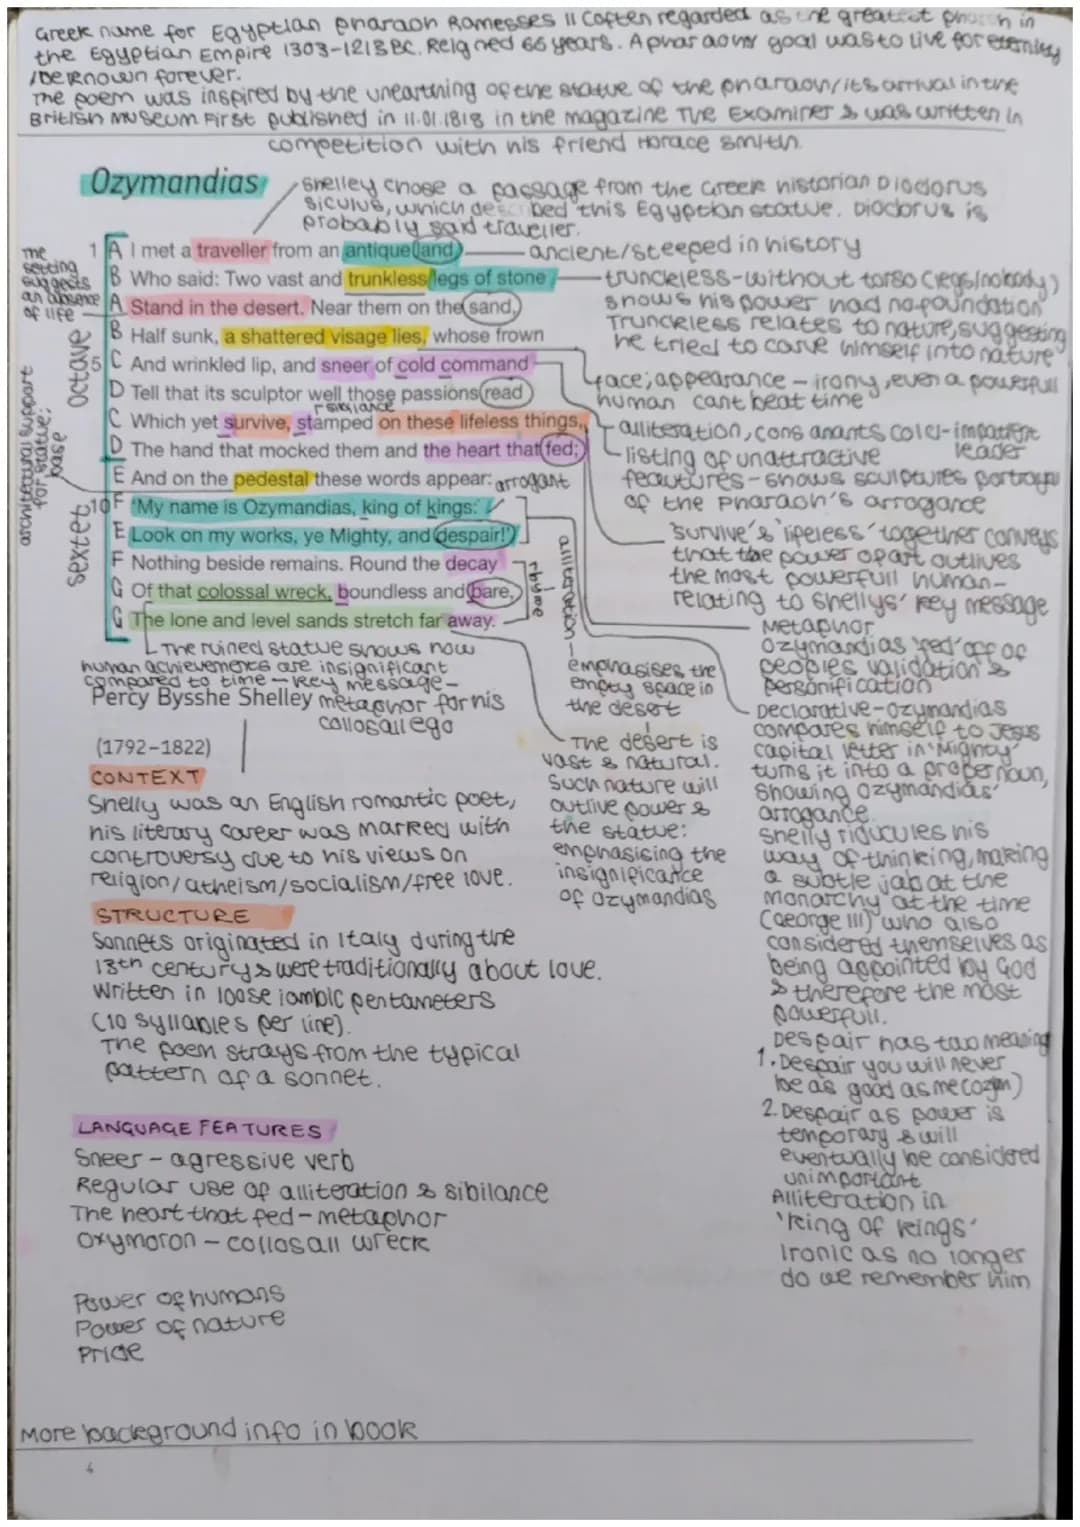 Greek name for Egyptian pharaoh Ramesses II (often regarded as the greatest pharoh in
the Egyptian Empire 1303-1213 BC. Reigned 66 years. A pharaohs goal was to live for eternity
/be known forever.
The poem was inspired by the unearthing of the statue of the pharaoh/its arrival in the
British museum First published in 11.01.1818 in the magazine The Examiner & was written in
competition with his friend Horace Smith.
Ozymandias
Shelley chose a passage from the Greek historian Diodorus
Siculus, which described this Egyptian statue. Diodorus is
probably said traveller.
1 A I met a traveller from an antique land
ancient/steeped in history
B Who said: Two vast and trunkless legs of stone
A Stand in the desert. Near them on the sand,
B Half sunk, a shattered visage lies, whose frown
5 C And wrinkled lip, and sneer of cold command
D Tell that its sculptor well those passions read
C Which yet survive, stamped on these lifeless things,
D The hand that mocked them and the heart that fed;
E And on the pedestal these words appear:
arrogant
10 F 'My name is Ozymandias, king of kings:
E Look on my works, ye Mighty, and despair!')
F Nothing beside remains. Round the decay
G Of that colossal wreck, boundless and bare,
G The lone and level sands stretch far away.
The
setting
suggests
an absence
of life
octave
sextet
architectural support
for statue;
base
trunckless-without torso (legs/nobody)
shows his power had no foundation
Trunckless relates to nature, suggesting
he tried to carve himself into nature
face; appearance - irony, even a powerfull
human cant beat time
alliteration, consanants cold-impatient
leader
listing of unattractive
feautures-shows sculptures portrayal
of the Pharaoh's arrogance
'survive' & 'lifeless' together conveys
that the power of art outlives
the most powerfull human-
relating to Shellys' key message
Metaphor
Ozymandias 'fed' off of
peoples validation &
personification
Declarative-Ozymandias
compares himself to Jesus
capital letter in 'Mighty'
turns it into a proper noun,
showing Ozymandias'
arrogance.
Shelly riducules his
way of thinking, making
a subtle jab at the
monarchy at the time
(George III) who also
considered themselves as
being appointed by God
& therefore the most
powerfull.
Despair has two meaning
1. Despair you will never
be as good as me (ozym)
2. Despair as power is
temporary & will
eventually be considered
unimportant
Alliteration in
'king of kings'
Ironic as no longer
do we remember him
rhyme
alliteration-
emphasises the
empty space in
the desert
The desert is
vast & natural.
such nature will
outlive power &
the statue:
emphasising the
insignificance
of Ozymandias
The ruined statue shows how
human achievements are insignificant
compared to time - key message-
Percy Bysshe Shelley
metaphor for his
collosall ego
(1792-1822)
CONTEXT
Shelly was an English romantic poet,
his literary career was marked with
controversy due to his views on
religion/atheism/socialism/free love.
STRUCTURE
Sonnets originated in Italy during the
13th century & were traditionally about love.
Written in loose iambic pentameters
(10 syllables per line).
The poem strays from the typical
pattern of a sonnet.
LANGUAGE FEATURES
Sneer - agressive verb
Regular use of alliteration & sibilance
The heart that fed - metaphor
Oxymoron - collosall wreck
Power of humans
Power of nature
Pride
More background info in book
4